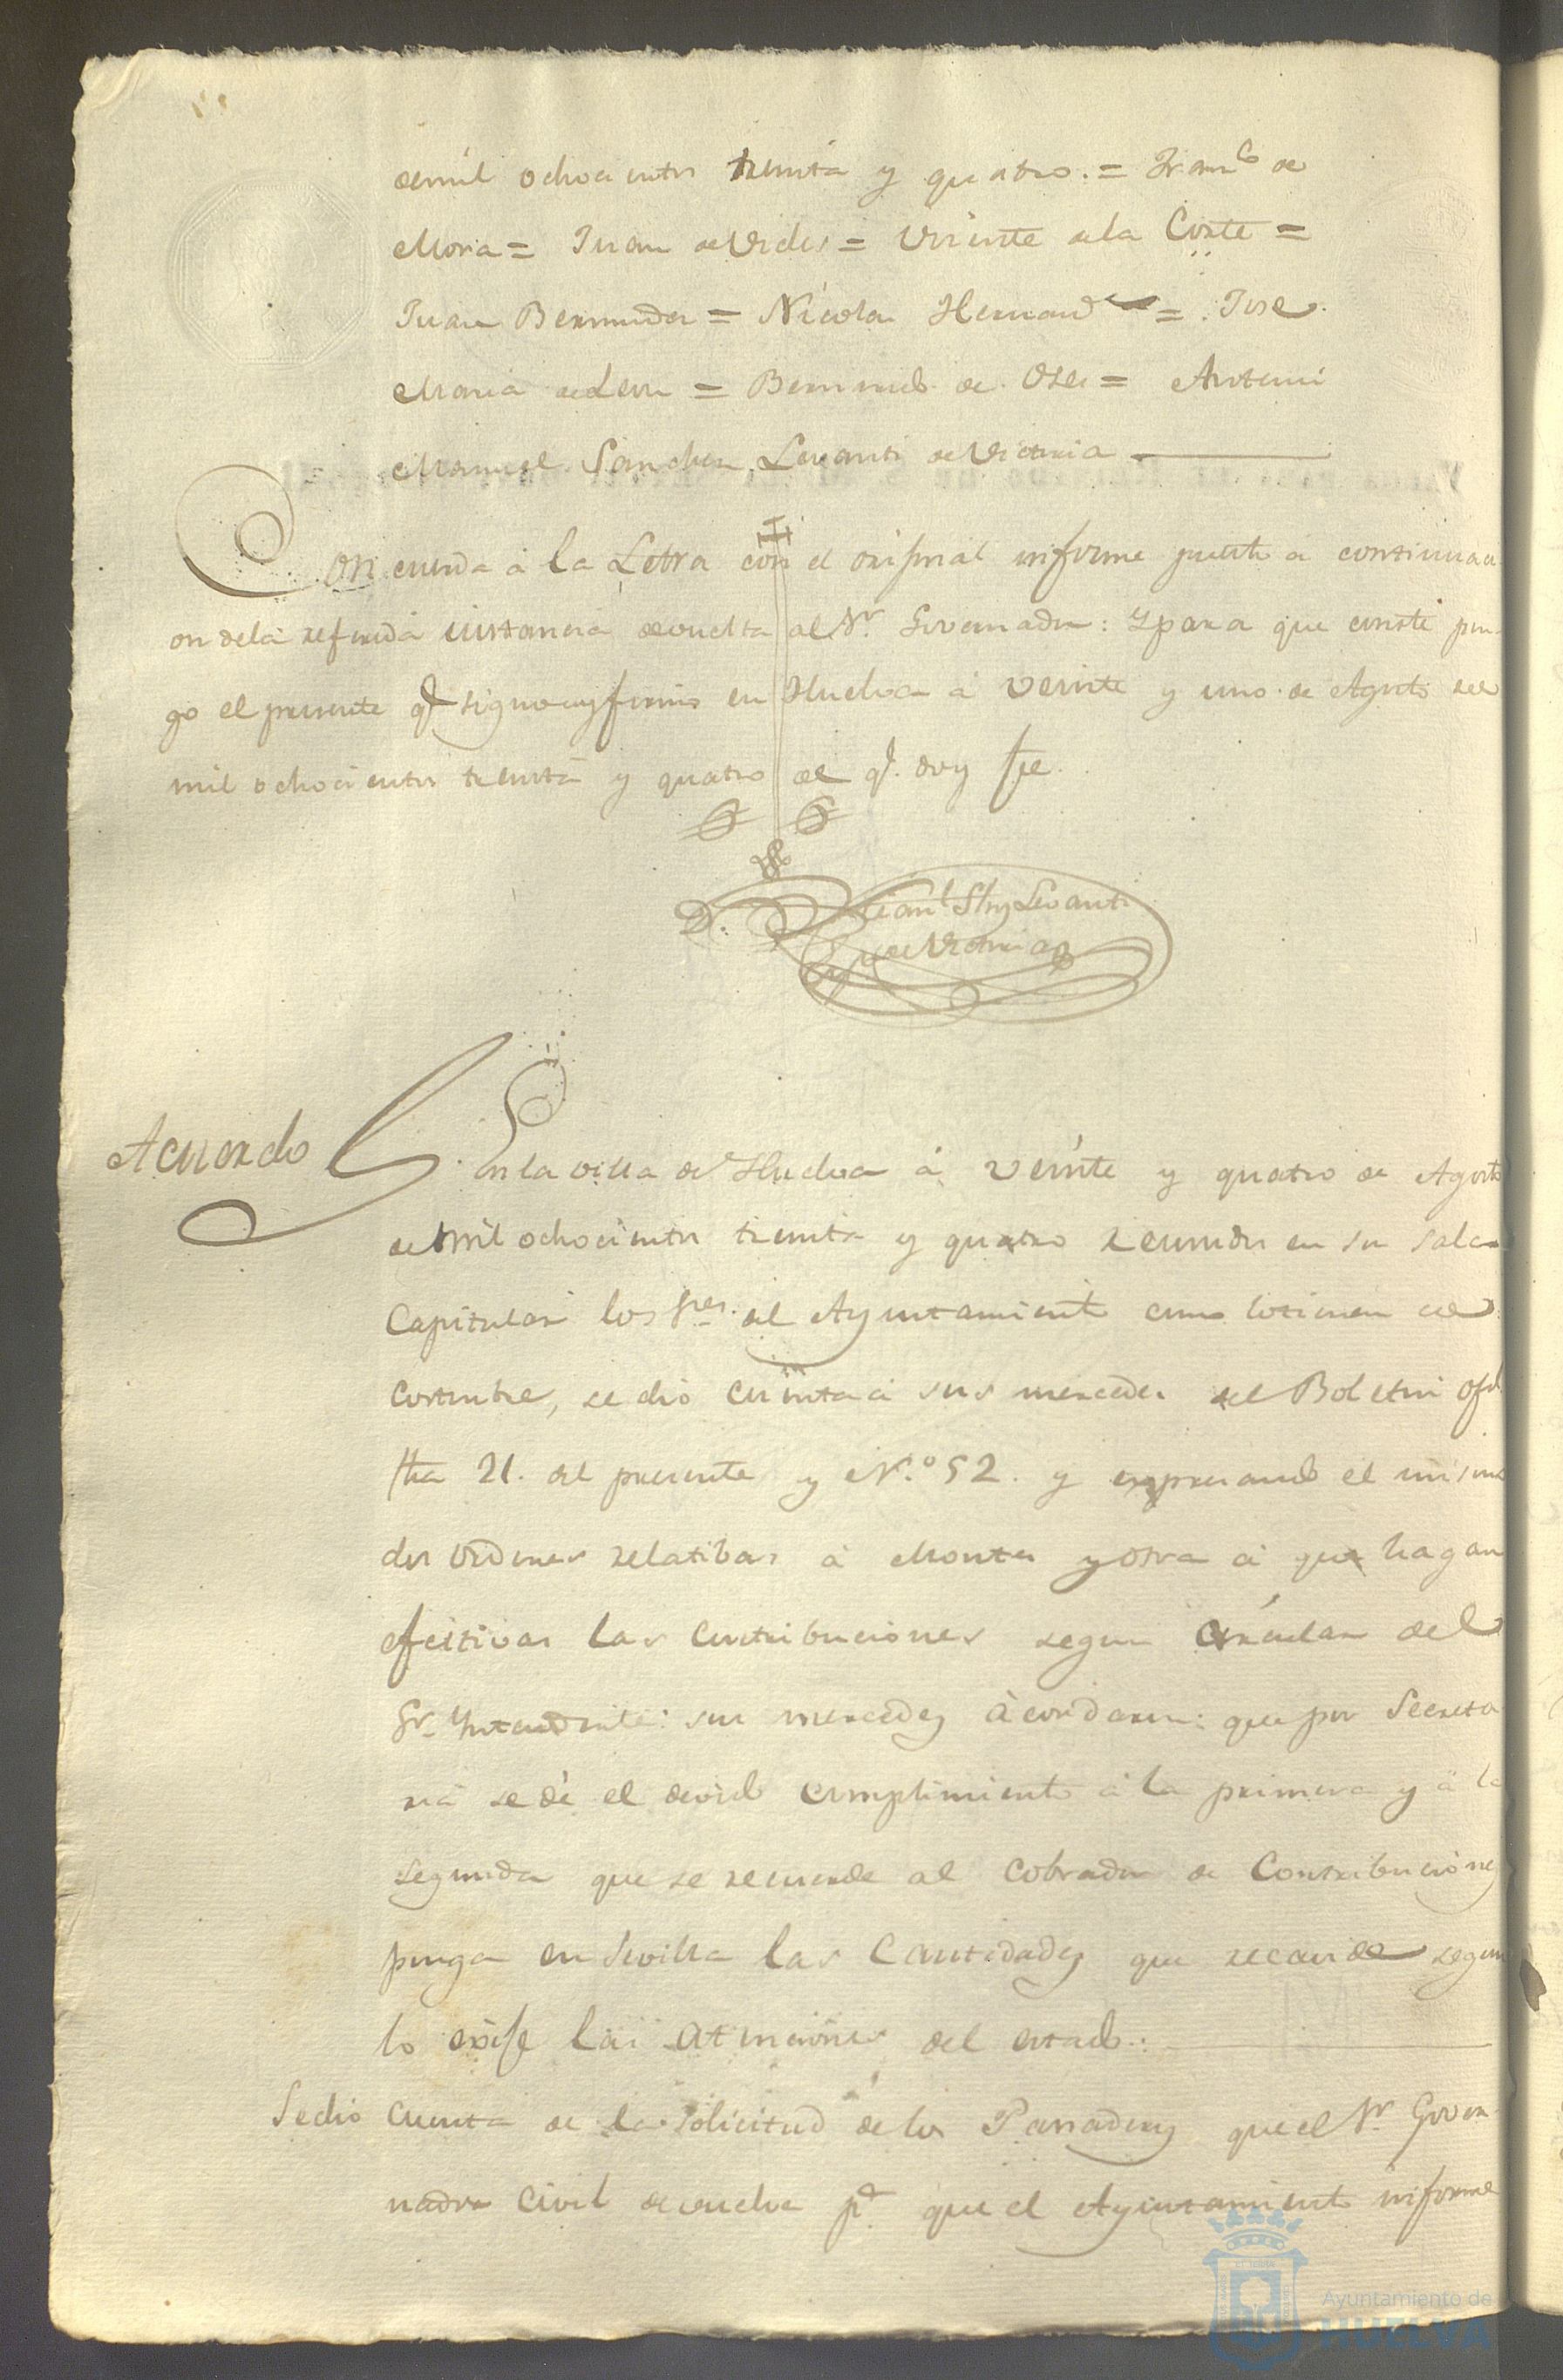 de mil ochocientos treinta y quatro. = Franco de
Mora = Juan de Vides = Vicente de la Corte =
Juan Bermudez = Nicolas Hernandez = Jose
Maria de Leon = Bernardo de = Antonio
Manuel Sanchez Levanti de Victoria
Concuerda a la Letra con el orijinal informe puesto a continuaci
on de la referida instancia devuelta al Sr. Governador: Y para que conste pon
go el presente q.e signo y firmo en Huelva a veinte y uno de Agosto de
mil ochocientos treinta y quatro de q.e doy fee
Man.l Shz Levanti
de Victoria
Acuerdo
En la villa de Huelva à veinte y quatro de Agosto
de mil ochocientos treinta y quatro reunidos en su sala
Capitular los Sres. del Ayuntamiento como lo tienen de
costumbre, se dio cuenta a sus mercedes del Boletin ofl
fha 21. del presente y N.º 52. y expresando el mismo
dos ordenes relatibas à Montes y otra à que hagan
efectivas las contribuciones segun circular del
Sr. Yntendente: sus mercedes acordaron: que por Secreta
ria se dé el devido cumplimiento à la primera y à la
segunda que se recuerde al Cobrador de Contribuciones
ponga en Sevilla las Cantidades que recaude segun
lo exije las atenciones del estado.
Se dio cuenta de la solicitud de los Panaderos que el Sr. Gover
nador Civil devuelve p.a que el Ayuntamiento informe
Ayuntamiento de
HUELVA